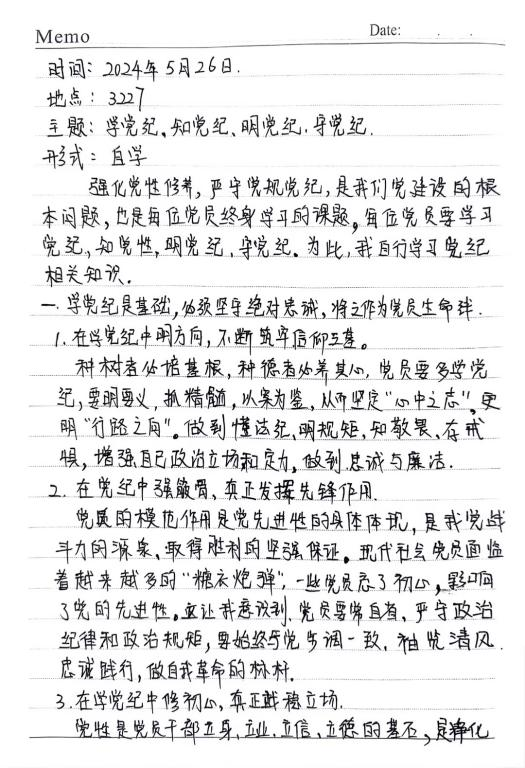 Memo
Date: . .
时间：2024年5月26日.
地点：3227
主题：学党纪、知党纪、明党纪.守党纪.
形式：自学
强化党性修养，严守党规党纪，是我们党建设的根
本问题，也是每位党员终身学习的课题。每位党员要学习
党纪，知党性，明党纪，守党纪。为此，我自行学习党纪
相关知识.
一.学党纪是基础，必须坚守绝对忠诚，将之作为党员生命线.
1.在学党纪中明方向，不断筑牢信仰之基。
种树者必培其根，种德者必养其心，党员要多学党
纪，要明要义，抓精髓，以案为鉴，从而坚定“心中之志”，更
明“行路之向”。做到懂法纪，明规矩，知敬畏、存戒
惧，增强自己政治立场和定力，做到忠诚与廉洁.
2.在党纪中强骨，真正发挥先锋作用.
党员的模范作用是党先进性的具体体现，是我党战
斗力的源泉、取得胜利的坚强保证。现代社会党员面临
着越来越多的“糖衣炮弹”，一些党员忘了初心，影响
了党的先进性。这让我意识到，党员要常自省、严守政治
纪律和政治规矩，要始终与党步调一致，袖览清风.
忠诚践行，做自我革命的标杆.
3.在学党纪中修初心，真正战稳立场.
党性是党员干部立身、立业、立信、立德的基石，是净化